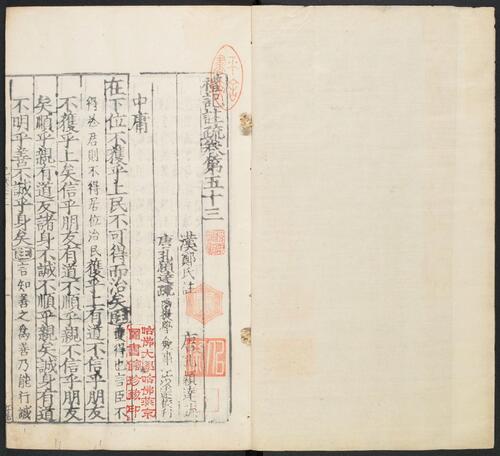 禮記註疏卷第五十三
漢鄭氏註
唐孔穎達疏
中庸
在下位不獲乎上民不可得而治矣註獲得也言臣不
得於君則不得居位治民獲乎上有道不信乎朋友
不獲乎上矣信乎朋友有道不順乎親不信乎朋友
矣順乎親有道反諸身不誠不順乎親矣誠身有道
不明乎善不誠乎身矣註言知善之爲善乃能行誠
哈佛大學哈佛燕京
圖書館珍藏印